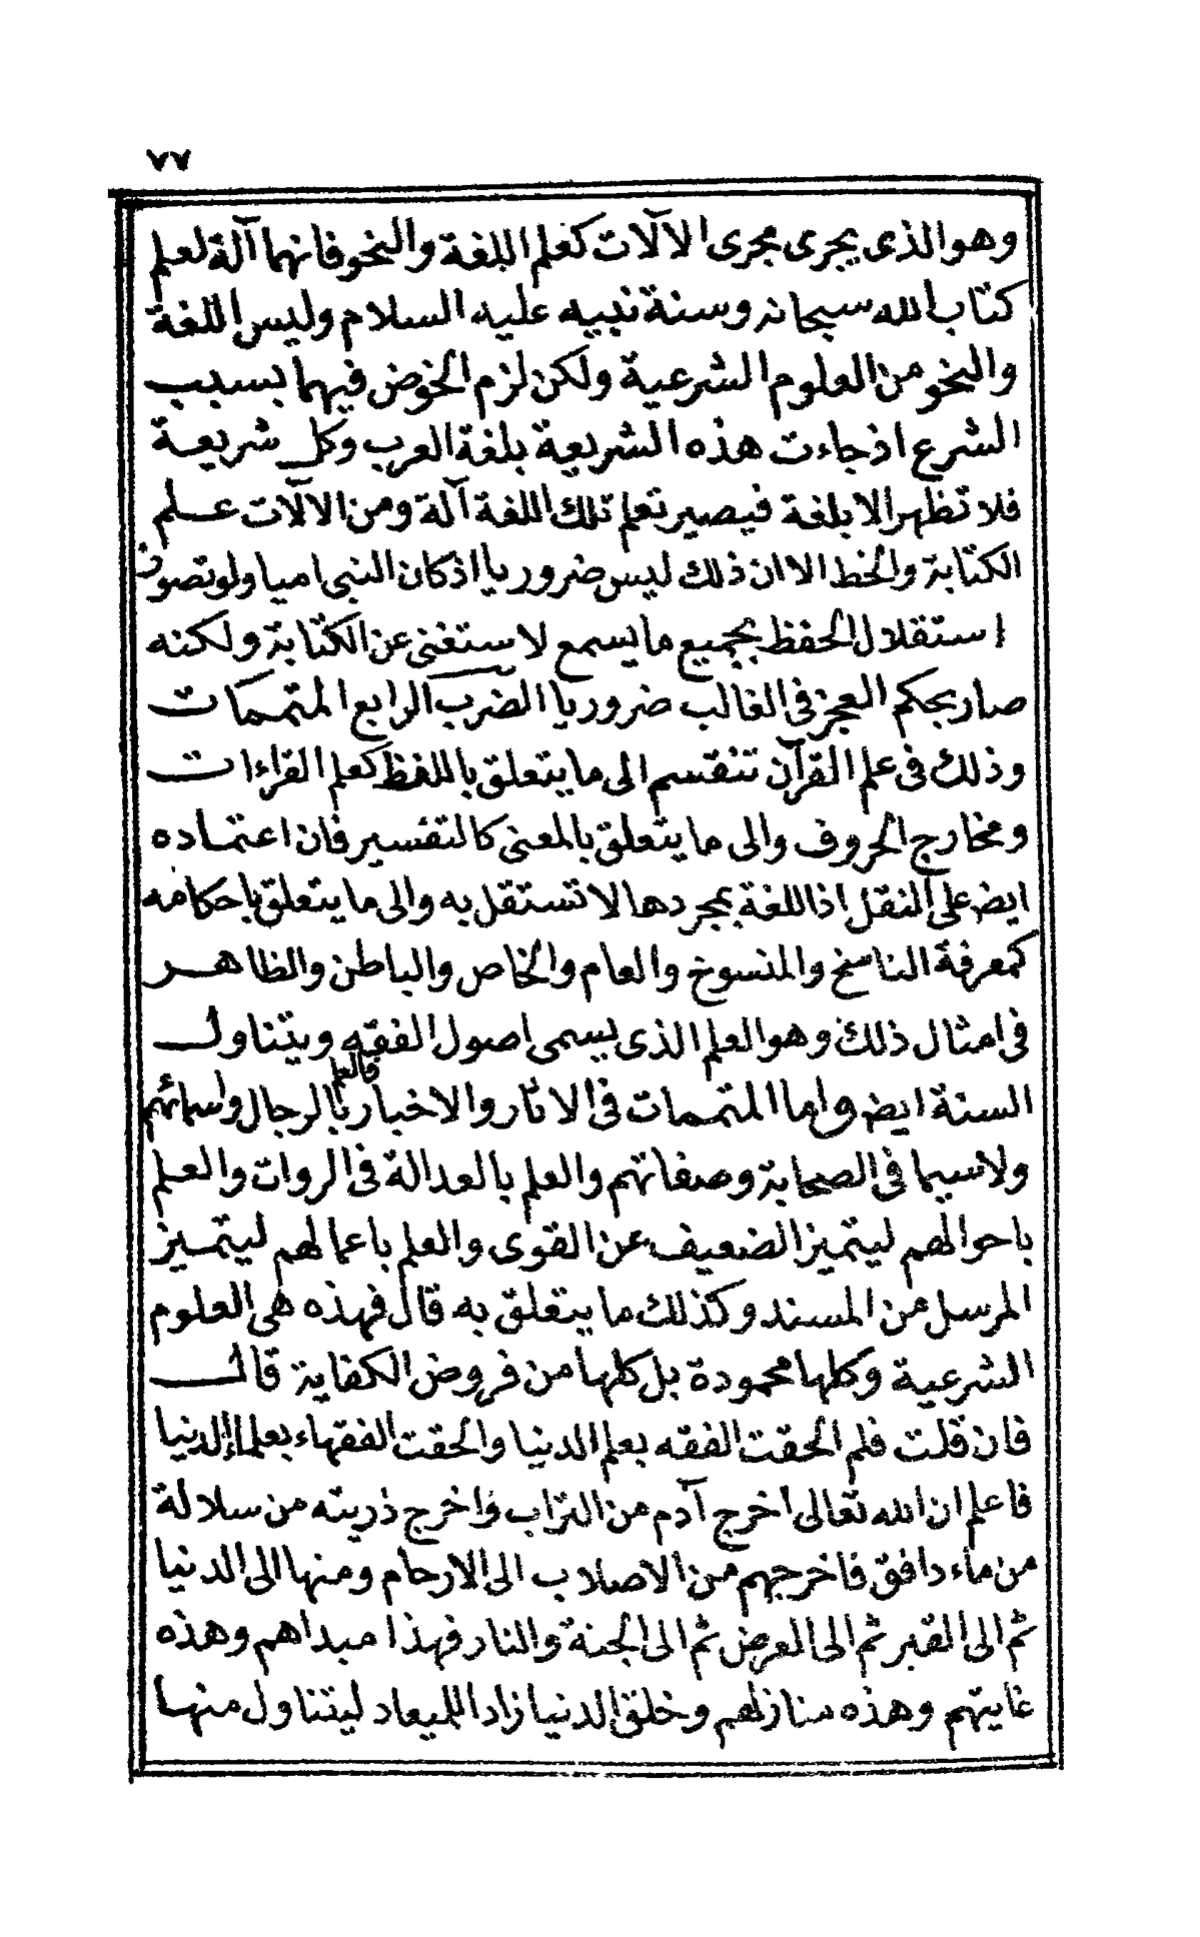 ٧٧
وهو الذى يجرى مجرى الآلات كعلم اللغة والنحو فانهما آلة لعلم
كتاب الله سبحانه وسنة نبيه عليه السلام وليس اللغة
والنحو من العلوم الشرعية ولكن لزم الخوض فيهما بسبب
الشرع اذ جاءت هذه الشريعة بلغة العرب وكل شريعة
فلا تظهر الا بلغة فيصير تعلم تلك اللغة آلة ومن الالآت علم
الكتابة والخط الا ان ذلك ليس ضروريا اذ كان النبى اميا ولو تصور
استقلال الحفظ بجميع ما يسمع لاستغنى عن الكتابة ولكنه
صار بحكم العجز فى الغالب ضروريا الضرب الرابع المتممات
وذلك فى علم القرآن تنقسم الى ما يتعلق باللفظ كعلم القراءات
ومخارج الحروف والى ما يتعلق بالمعنى كالتفسير فان اعتماده
ايض على النقل اذ اللغة بمجردها لا تستقل به والى ما يتعلق باحكامه
كمعرفة الناسخ والمنسوخ والعام والخاص والباطن والظاهر
فى امثال ذلك وهو العلم الذى يسمى اصول الفقه ويتناول
السنة ايض واما المتممات فى الاثار والاخبار فالعلم بالرجال واسمائهم
ولاسيما فى الصحابة وصفاتهم والعلم بالعدالة فى الروات والعلم
باحوالهم ليتميز الضعيف عن القوى والعلم باعمالهم ليتميز
المرسل من المسند وكذلك ما يتعلق به قال فهذه هى العلوم
الشرعية وكلها محمودة بل كلها من فروض الكفاية قال
فان قلت فلم الحقت الفقه بعلم الدنيا والحقت الفقهاء بعلماء الدنيا
فاعلم ان الله تعالى اخرج آدم من التراب واخرج ذريته من سلالة
من ماء دافق فاخرجهم من الاصلاب الى الارحام ومنها الى الدنيا
ثم الى القبر ثم الى العرض ثم الى الجنة والنار فهذا مبداهم وهذه
غايتهم وهذه منازلهم وخلق الدنيا زادا للميعاد ليتناول منها